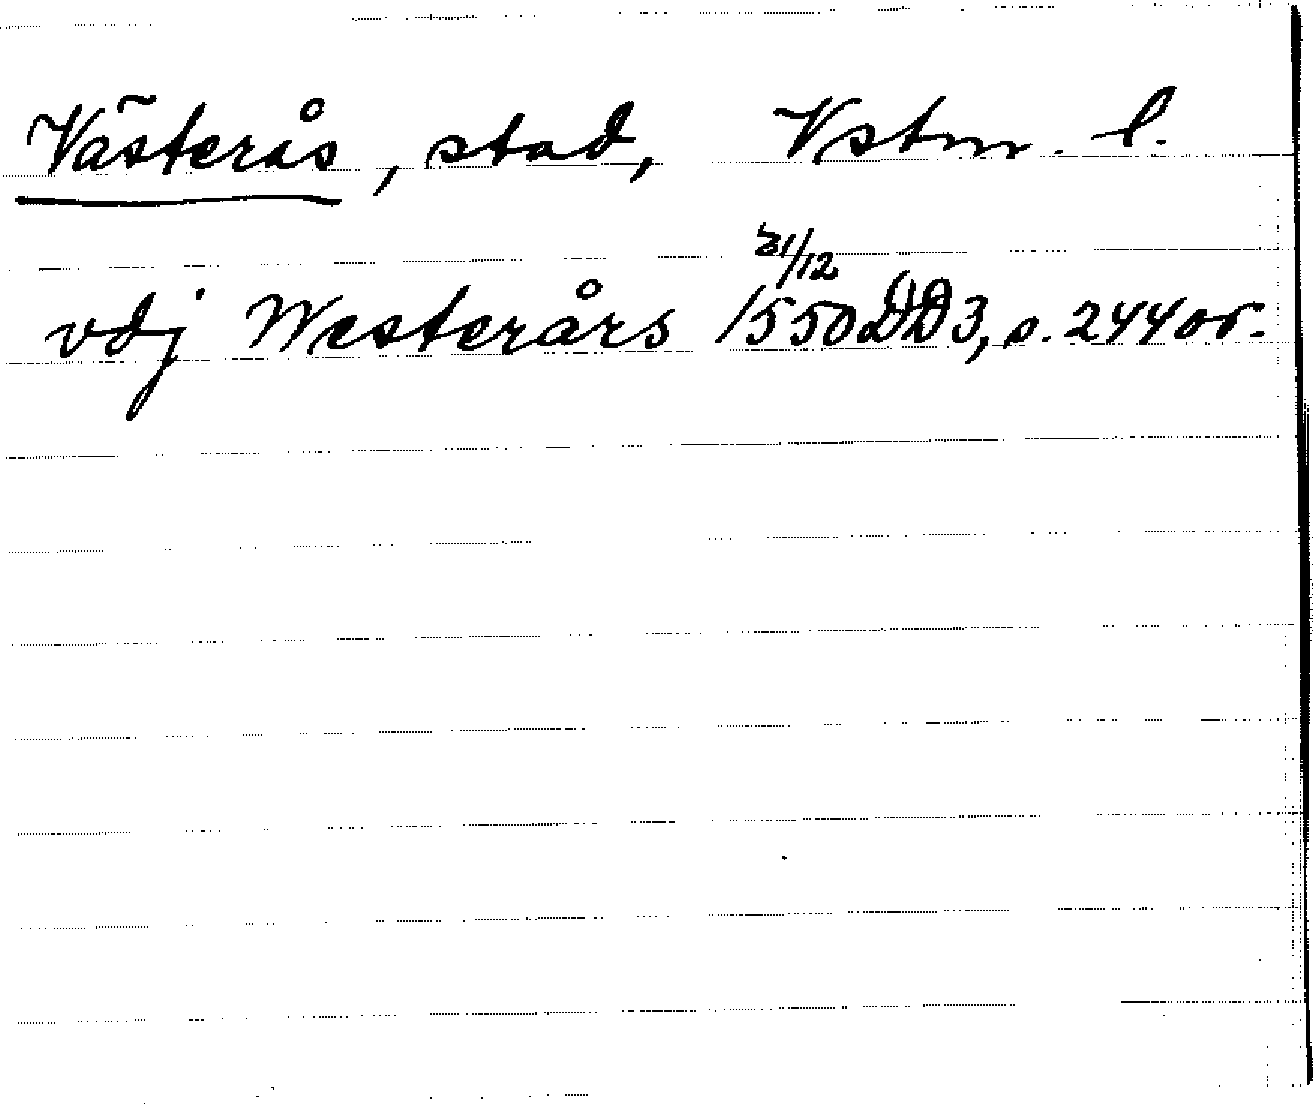 Västerås, stad, Vstm. l.
vdj Westerårs 1550 21/12 DD3, s. 244 or.